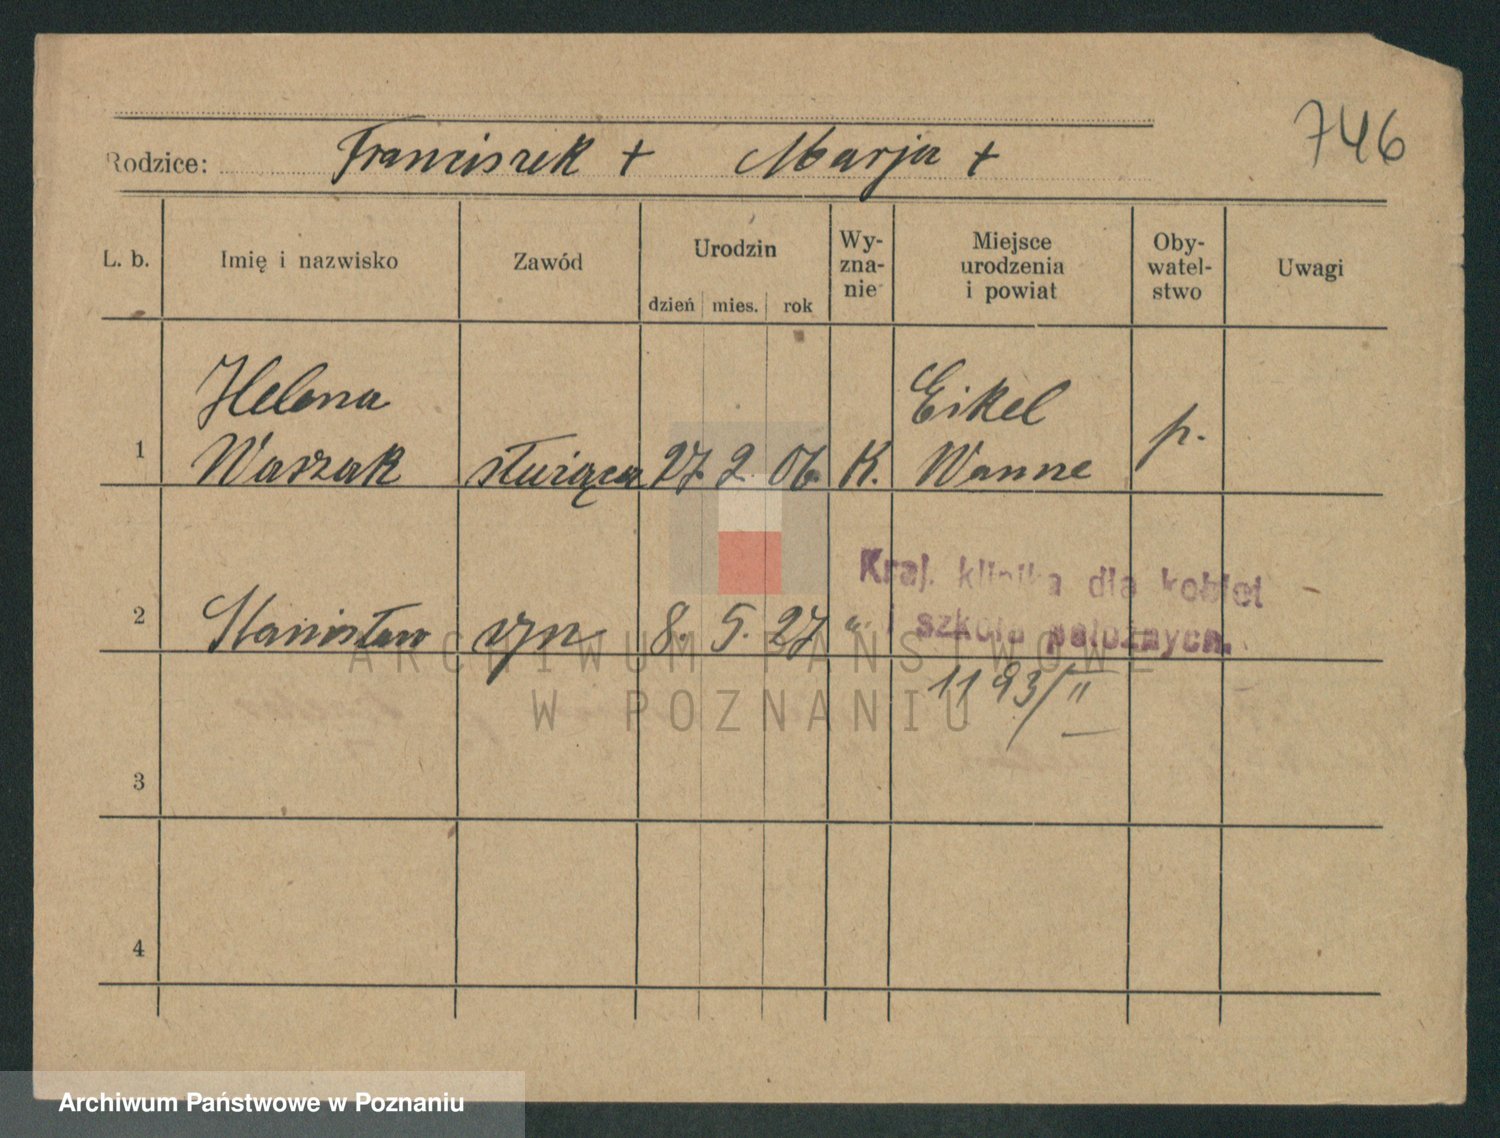 746
Rodzice: Franciszek + Marja +
L. b. Imię i nazwisko Zawód Urodzin Wy-zna-nie Miejsce urodzenia i powiat Oby-watel-stwo Uwagi
dzień mies. rok
Helena Eikel
1 Waszak służąca 27. 2. 06. K. Wanne p.
Kraj. klinika dla kobiet
2 Stanisław syn 8. 5. 27 " i szkoła położnych.
1193/II
3
4
ARCHIWUM PAŃSTWOWE
W POZNANIU
Archiwum Państwowe w Poznaniu